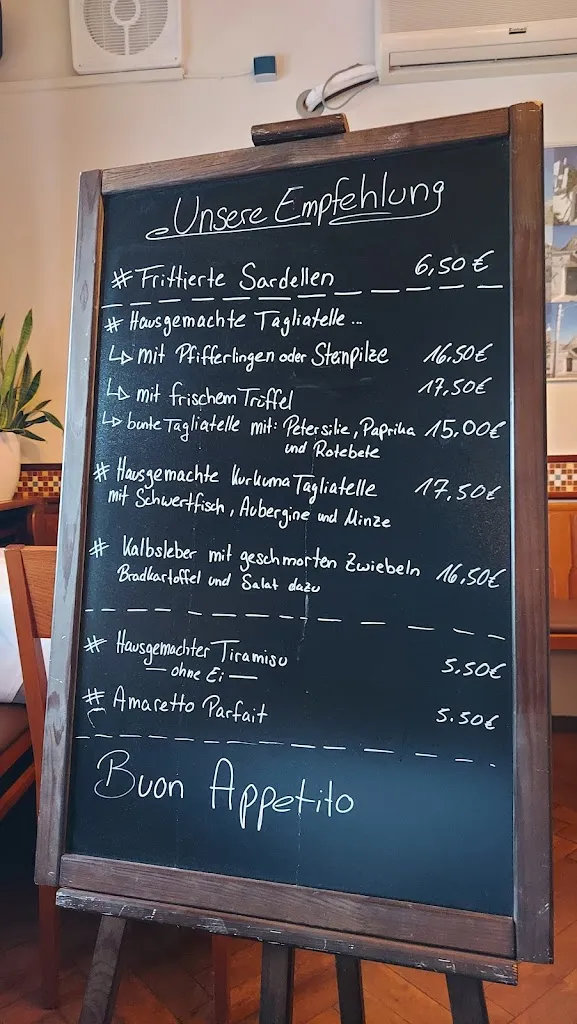 Unsere Empfehlung
# Frittierte Sardellen 6,50 €
# Hausgemachte Tagliatelle ...
↳ mit Pfifferlingen oder Steinpilze 16.50€
↳ mit frischem Trüffel 17,50€
↳ bunte Tagliatelle mit: Petersilie, Paprika 15,00€
und Rotebete
# Hausgemachte Kurkuma Tagliatelle 17,50€
mit Schwertfisch, Aubergine und Minze
# Kalbsleber mit geschmorten Zwiebeln 16,50€
Bradkartoffel und Salat dazu
# Hausgemachter Tiramisu 5.50€
— ohne Ei —
# Amaretto Parfait 5.50€
Buon Appetito